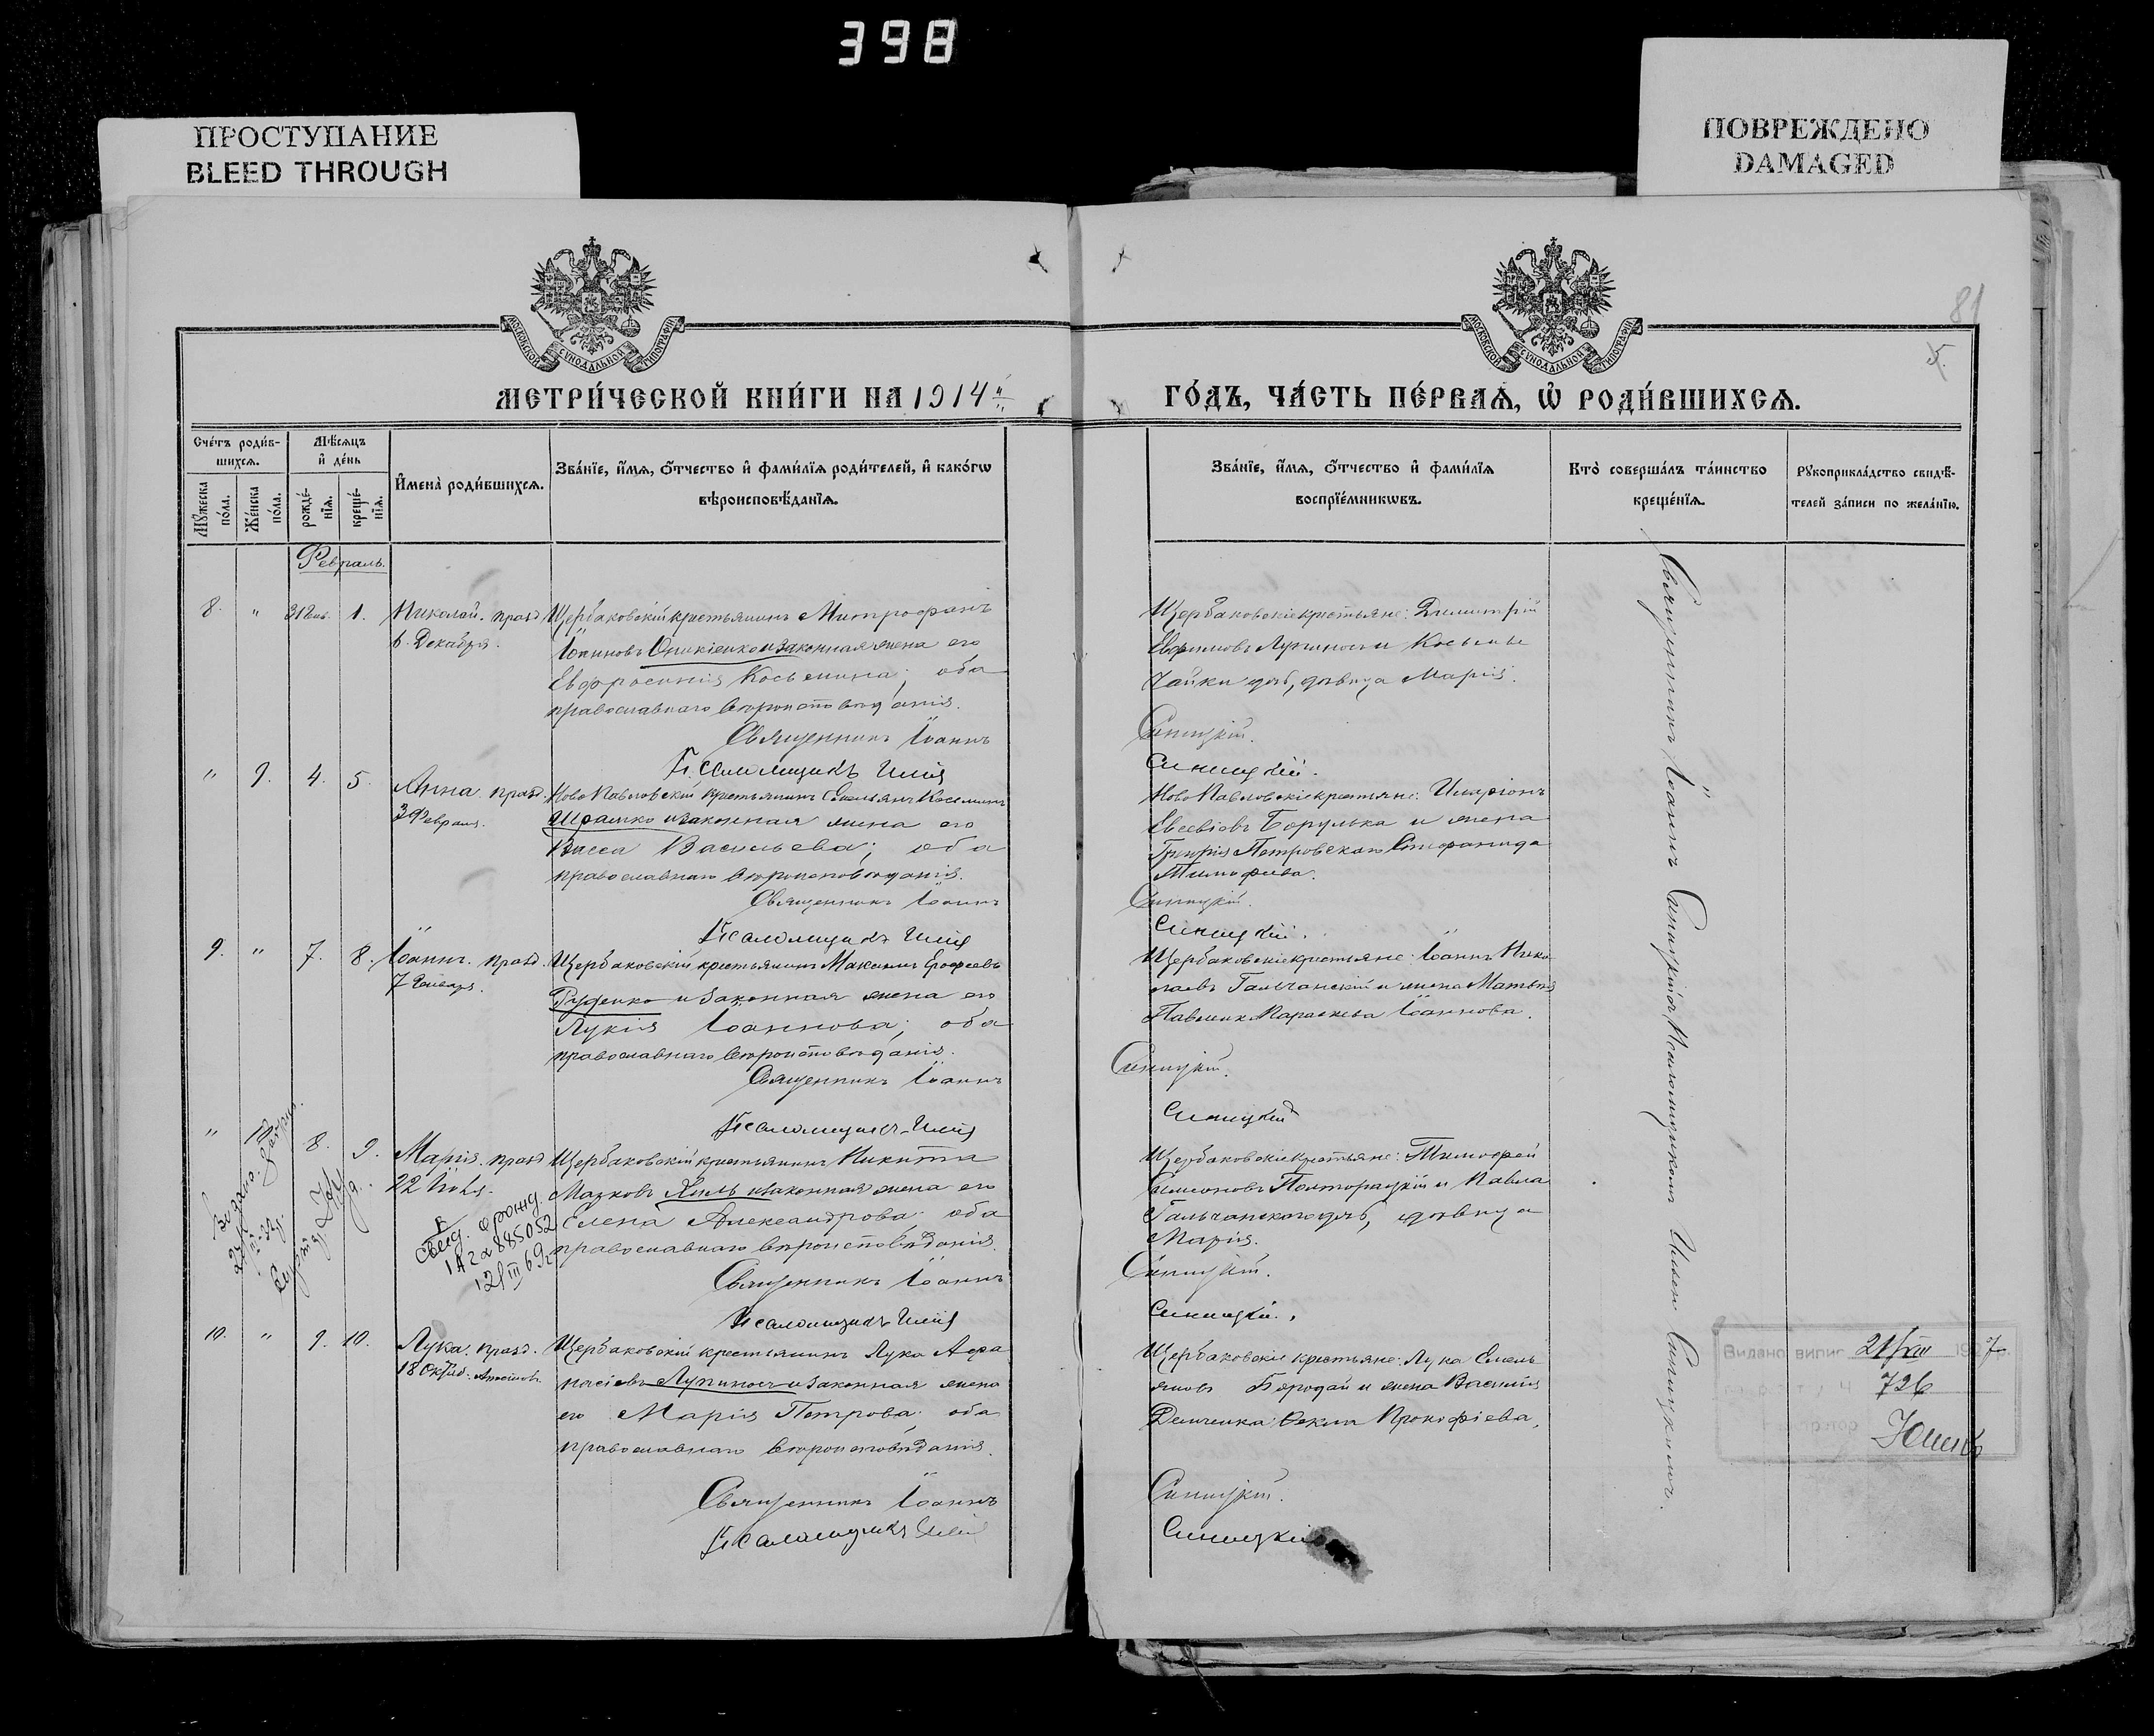 398
ПРОСТУПАНИЕ
BLEED THROUGH
ПОВРЕЖДЕНО
DAMAGED
МОСКОВСКОЙ СУНОДАЛЬНОЙ ТИПОГРАФІИ
МОСКОВСКОЙ СУНОДАЛЬНОЙ ТИПОГРАФІИ
81
5.
МЕТРИ́ЧЕСКОЙ КНИ́ГИ НА 1914 й
ГО́ДЪ, ЧА́СТЬ ПЕ́РВАѦ, Ѡ҆ РОДИ́ВШИХСѦ.
Сче́тъ роди́в-
шихсѧ.
Мѣ́сѧцъ
и҆ де́нь
Мꙋ́жеска
по́ла.
Же́нска
по́ла.
рожде́-
нїѧ.
креще́-
нїѧ.
И҆мена̀ роди́вшихсѧ.
Зва́нїе, и҆́мѧ, ѻ҆́тчество и҆ фами́лїѧ роди́телей, и҆ како́гѡ
вѣроисповѣ́данїѧ.
Зва́нїе, и҆́мѧ, ѻ҆́тчество и҆ фами́лїѧ
воспрїе́мникѡвъ.
Кто̀ соверша́лъ та́инство
креще́нїѧ.
Рꙋкоприкла́дство свидѣ́-
телей за́писи по жела́нїю.
Февраль.
8. " 31 Янв. 1. Николай. празд.
6. Декабря.
Щербаковскій крестьянинъ Митрофанъ
Іоанновъ Оникіенко и законная жена его
Евфросинія Косьмина; оба
православнаго вѣроисповѣданія.
Священникъ Іоаннъ
Псаломщикъ Илія
Щербаковскіе крестьяне: Димитрій
Ефимовъ Лупиносъ и Косьмы
Чайки доч, дѣвица Марія.
Синицкій.
Синицкій.
" 9. 4. 5. Анна. празд.
3 Февраля.
Ново Павловскій крестьянинъ Емельянъ Косьминъ
Шрамко и законная жена его
Васса Васильева; оба
православнаго вѣроисповѣданія.
Священникъ Іоаннъ
Псаломщикъ Илія
Ново Павловскіе крестьяне: Иларіонъ
Евсевіевъ Борулька и жена
Григорія Петровскаго Епифанида
Тимофеева.
Синицкій.
Синицкій.
9. " 7. 8. Іоаннъ. празд.
7 Января.
Щербаковскій крестьянинъ Максимъ Ерофеевъ
Руденко и законная жена его
Лукія Іоаннова; оба
православнаго вѣроисповѣданія.
Священникъ Іоаннъ
Псаломщикъ Илія
Щербаковскіе крестьяне: Іоаннъ Нико-
лаевъ Гальчанскій и жена Матѳея
Павлика Параскева Іоаннова.
Синицкій.
Синицкій
" 10. 8. 9. Марія. празд.
22 Іюля.
Щербаковскій крестьянинъ Никита
Мазковъ Хиль и законная жена его
Елена Александрова; оба
православнаго вѣроисповѣданія.
Священникъ Іоаннъ
Псаломщикъ Илія
Щербаковскіе крестьяне: Тимоѳей
Симеоновъ Полторацкій и Павла
Гальчанскаго доч, дѣвица
Марія.
Синицкій.
Синицкій.
Свид. о рожд.
885052
12/III 69
10. " 9. 10. Лука. празд.
18 Октяб. Апостолъ.
Щербаковскій крестьянинъ Лука Аѳа-
насіевъ Лупиносъ и законная жена
его Марія Петрова; оба
православнаго вѣроисповѣданія.
Священникъ Іоаннъ
Псаломщикъ Илія
Щербаковскіе крестьяне: Лука Емель-
яновъ Бородай и жена Василія
Демченка Ѳекла Прокофіева.
Синицкій.
Синицкій
Священникъ Іоаннъ Синицкій съ Псаломщикомъ Иліею Синицкимъ.
Видано випис 21/VIII 1927 р.
726